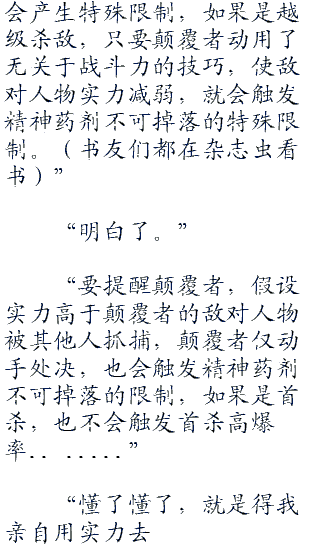 会产生特殊限制，如果是越
级杀敌，只要颠覆者动用了
无关于战斗力的技巧，使敌
对人物实力减弱，就会触发
精神药剂不可掉落的特殊限
制。（书友们都在杂志虫看
书）”
“明白了。”
“要提醒颠覆者，假设
实力高于颠覆者的敌对人物
被其他人抓捕，颠覆者仅动
手处决，也会触发精神药剂
不可掉落的限制，如果是首
杀，也不会触发首杀高爆
率.. .....”
“懂了懂了，就是得我
亲自用实力去